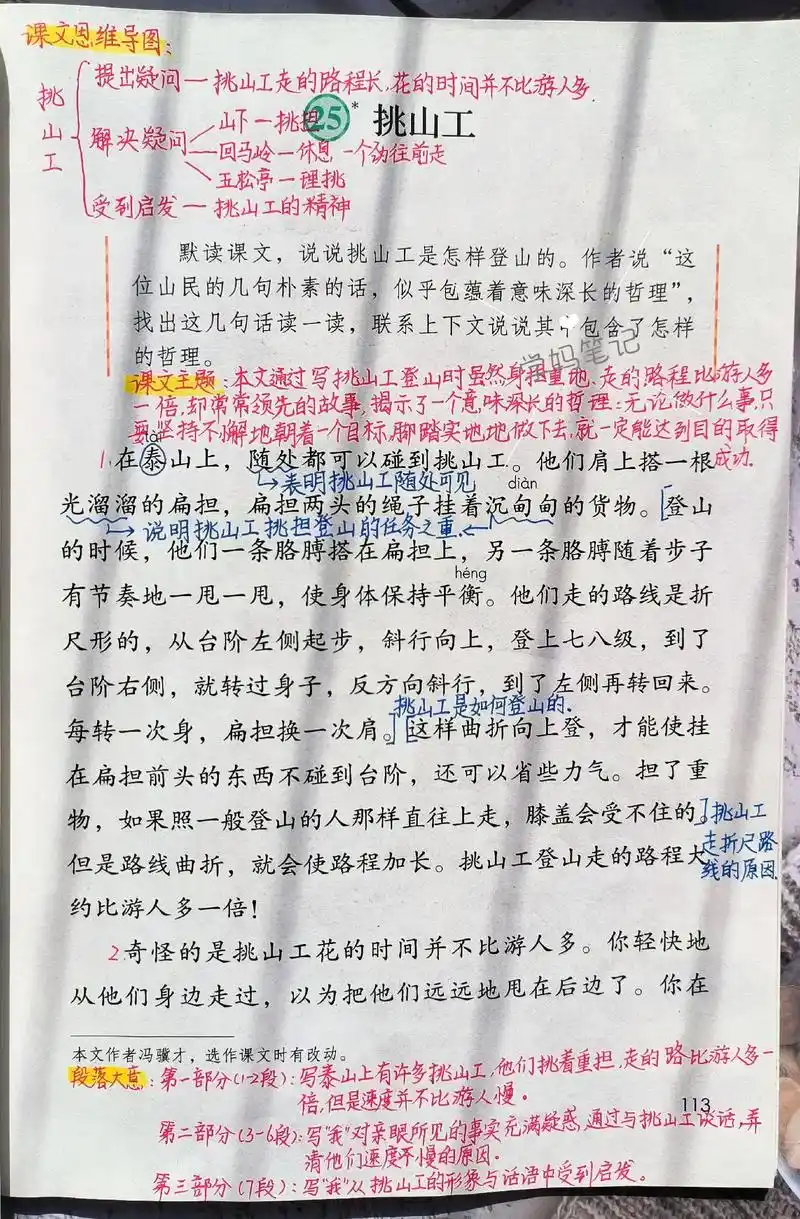 课文思维导图：
挑山工
提出疑问—挑山工走的路程长，花的时间并不比游人多
解决疑问
山下—挑担
回马岭—休息 一个劲往前走
五松亭—理挑
受到启发—挑山工的精神
25* 挑山工
默读课文，说说挑山工是怎样登山的。作者说“这
位山民的几句朴素的话，似乎包蕴着意味深长的哲理”，
找出这几句话读一读，联系上下文说说其中包含了怎样
的哲理。
学妈笔记
课文主题：本文通过写挑山工登山时虽然身担重地、走的路程比游人多
一倍，却常常领先的故事，揭示了一个意味深长的哲理：无论做什么事，只
要坚持不懈地朝着一个目标，脚踏实地地做下去，就一定能达到目的取得
成功.
tài
1.在泰山上，随处都可以碰到挑山工。他们肩上搭一根
表明挑山工随处可见
diàn
光溜溜的扁担，扁担两头的绳子挂着沉甸甸的货物。[登山
说明挑山工挑担登山的任务之重.
的时候，他们一条胳膊搭在扁担上，另一条胳膊随着步子
héng
有节奏地一甩一甩，使身体保持平衡。他们走的路线是折
尺形的，从台阶左侧起步，斜行向上，登上七八级，到了
台阶右侧，就转过身子，反方向斜行，到了左侧再转回来。
挑山工是如何登山的.
每转一次身，扁担换一次肩。][这样曲折向上登，才能使挂
在扁担前头的东西不碰到台阶，还可以省些力气。担了重
物，如果照一般登山的人那样直往上走，膝盖会受不住的。]
挑山工
走折尺路
线的原因.
但是路线曲折，就会使路程加长。挑山工登山走的路程大
约比游人多一倍！
2奇怪的是挑山工花的时间并不比游人多。你轻快地
从他们身边走过，以为把他们远远地甩在后边了。你在
本文作者冯骥才，选作课文时有改动。
段落大意：第一部分（1-2段）：写泰山上有许多挑山工，他们挑着重担，走的路比游人多一
倍，但是速度并不比游人慢。
113
第二部分（3-6段）：写“我”对亲眼所见的事实充满疑惑，通过与挑山工谈话，弄
清他们速度不慢的原因.
第三部分（7段）：写“我”从挑山工的形象与话语中受到启发。